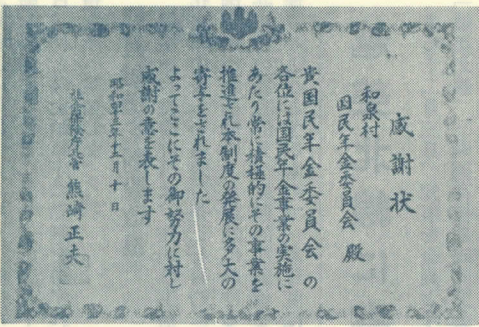 感謝状
和泉村
国民年金委員会 殿
貴国民年金委員会の
各位には国民年金事業の実施に
あたり常に積極的にその事業を
推進され本制度の発展に多大の
寄与をされました
よってここにその御努力に対し
感謝の意を表します
昭和四十三年十一月十日
社会保険庁長官 熊崎正夫